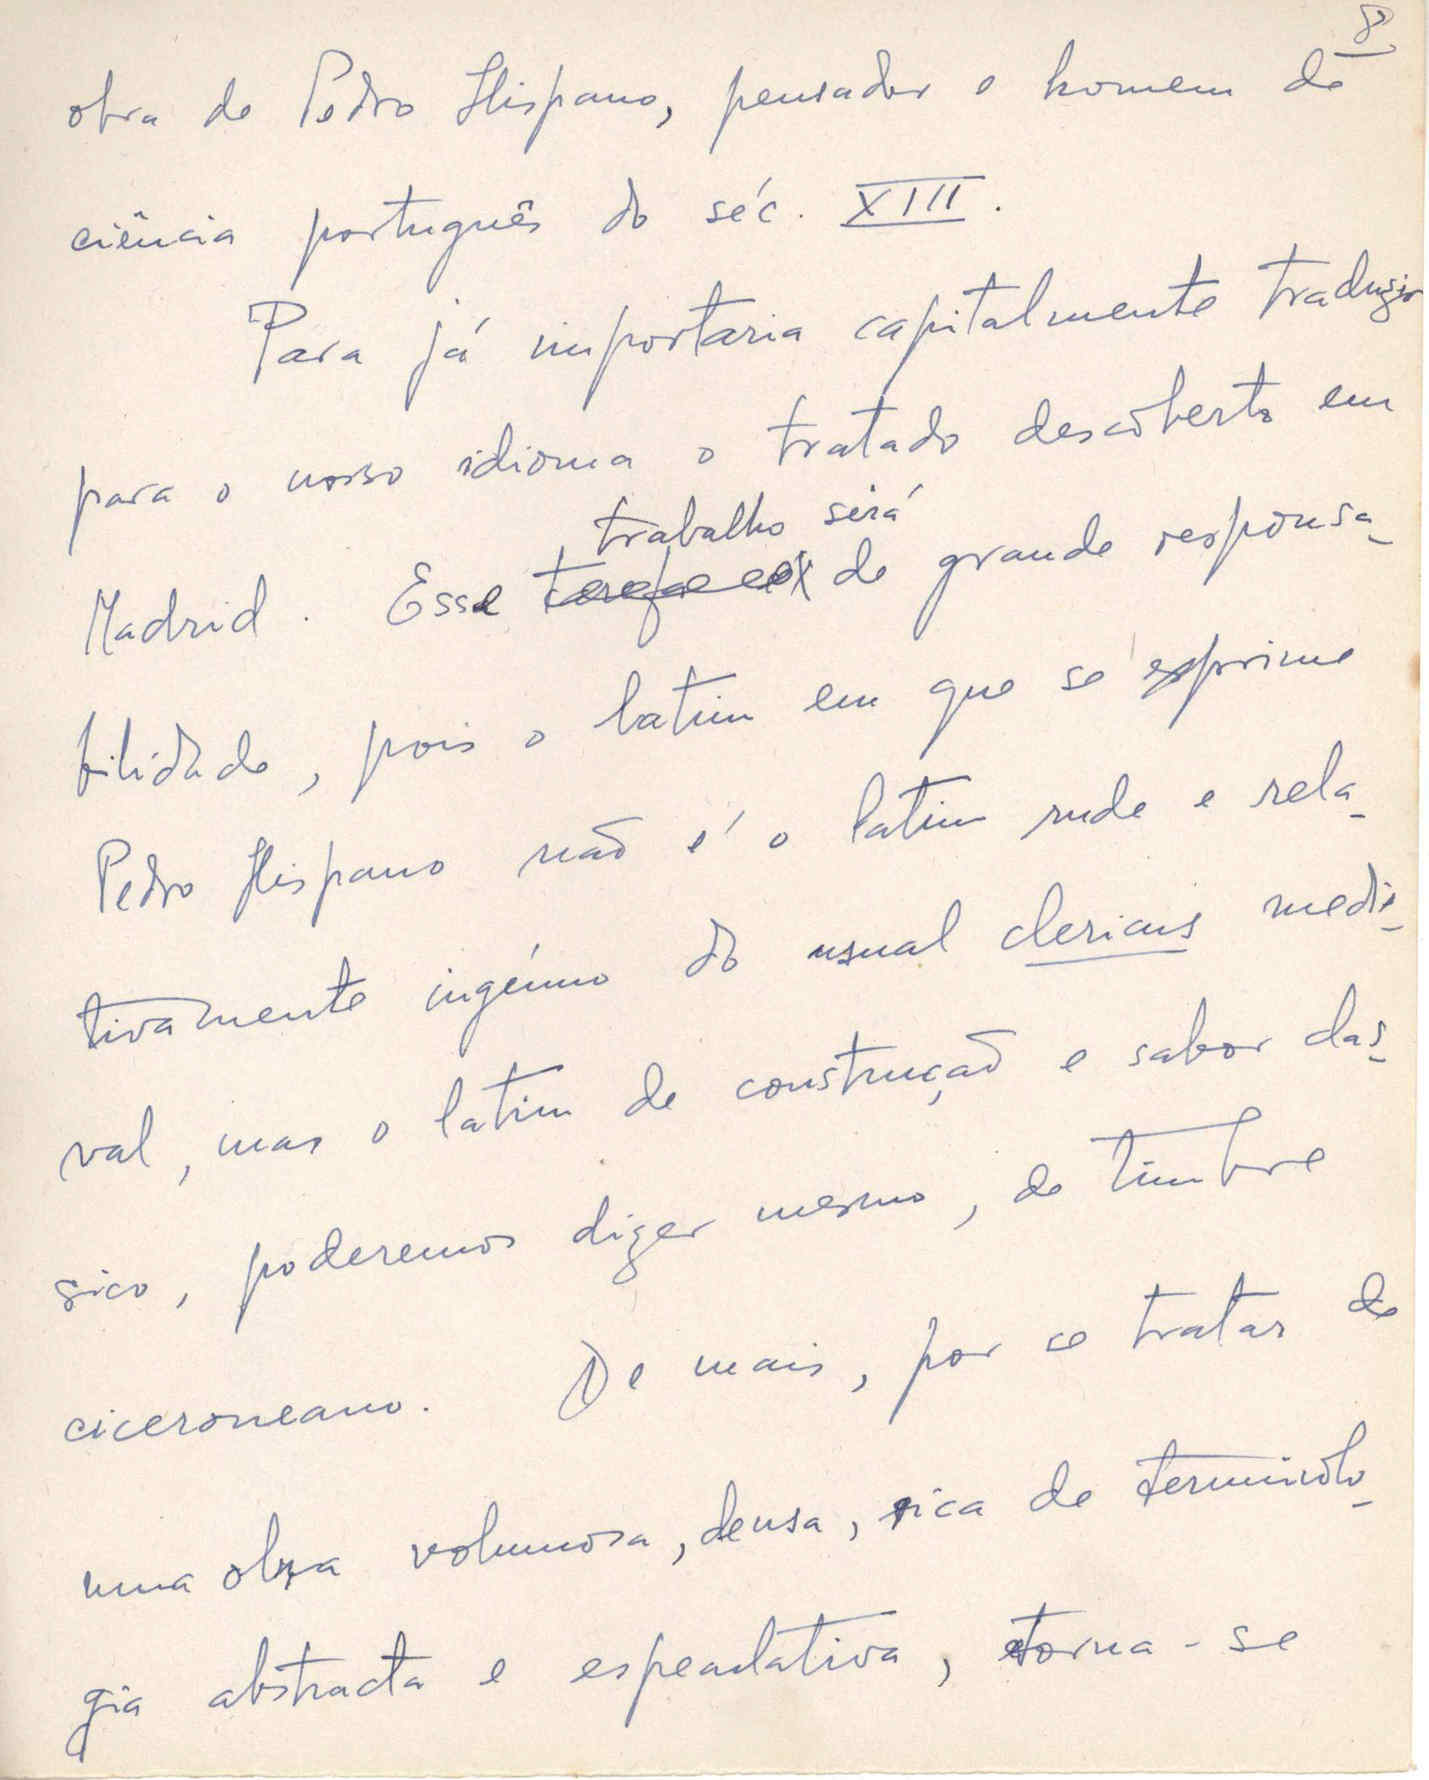 8
obra de Pedro Hispano, pensador e homem de
ciência português do séc. XIII.
Para já importaria capitalmente traduzir
para o nosso idioma o tratado descoberto em
trabalho será
Madrid. Esse de grande responsa-
bilidade, pois o latim em que se exprime
Pedro Hispano não é o latim rude e rela-
tivamente ingénuo do usual clericus medie-
val, mas o latim de construção e sabor clás-
sico, poderemos dizer mesmo, de timbre
ciceroneano. De mais, por se tratar de
uma obra volumosa, densa, rica de terminolo-
gia abstracta e especulativa, torna-se